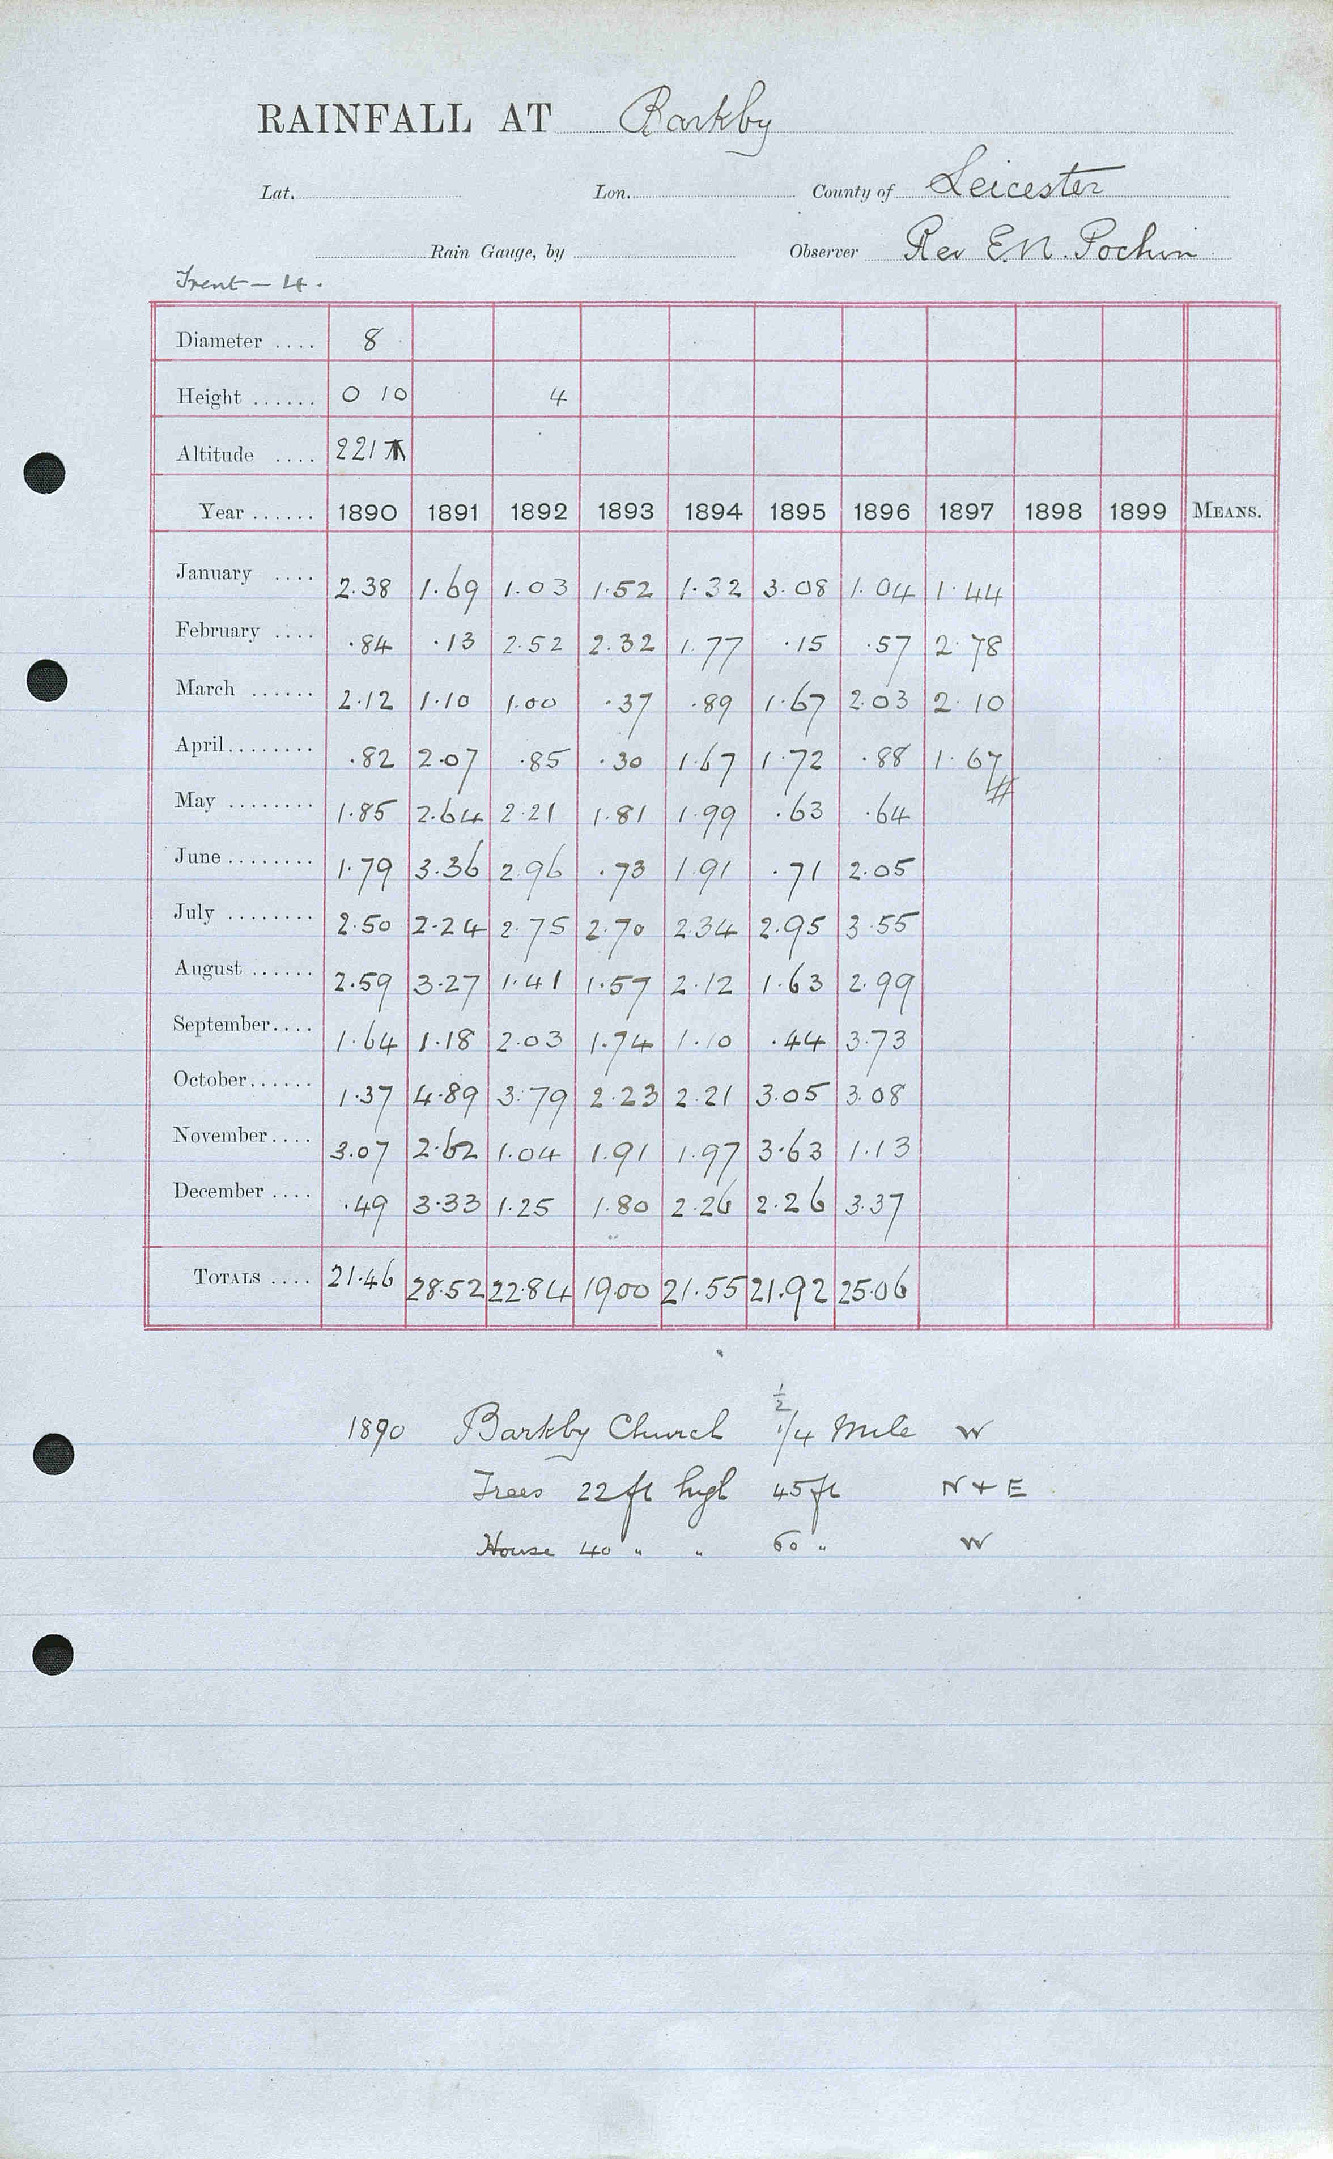 RAINFALL AT Barkby
Lat. Lon. County of Leicester
Rain Gauge, by Observer Rev E.N. Pochin
Trent — 4.
Diameter .... 8
Height ...... 0 10 4
Altitude .... 221 T
Year ...... 1890 1891 1892 1893 1894 1895 1896 1897 1898 1899 MEANS.
January .... 2.38 1.69 1.03 1.52 1.32 3.08 1.04 1.44
February .... .84 .13 2.52 2.32 1.77 .15 .57 2.78
March ...... 2.12 1.10 1.00 .37 .89 1.67 2.03 2.10
April........ .82 2.07 .85 .30 1.67 1.72 .88 1.67
May ........ 1.85 2.64 2.21 1.81 1.99 .63 .64
June ........ 1.79 3.36 2.96 .73 1.91 .71 2.05
July ........ 2.50 2.24 2.75 2.70 2.34 2.95 3.55
August ...... 2.59 3.27 1.41 1.57 2.12 1.63 2.99
September.... 1.64 1.18 2.03 1.74 1.10 .44 3.73
October...... 1.37 4.89 3.79 2.23 2.21 3.05 3.08
November.... 3.07 2.62 1.04 1.91 1.97 3.63 1.13
December .... .49 3.33 1.25 1.80 2.26 2.26 3.37
TOTALS .... 21.46 28.52 22.84 19.00 21.55 21.92 25.06
1/2
1890 Barkby Church 1/4 Mile W
Trees 22 ft high 45 ft N + E
House 40 " " 60 " W